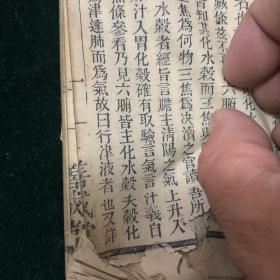 藏條恣不
皆知其化水穀而三焦與
之焦爲何物三焦爲决瀆之官讀吾所
水穀者經旨言膽主清陽之氣上升入
汁入胃化穀確有取驗言氣言汁義自
無條參看乃見六腑皆主化水穀夫穀化
津達肺而爲氣故曰行津液者也又詳